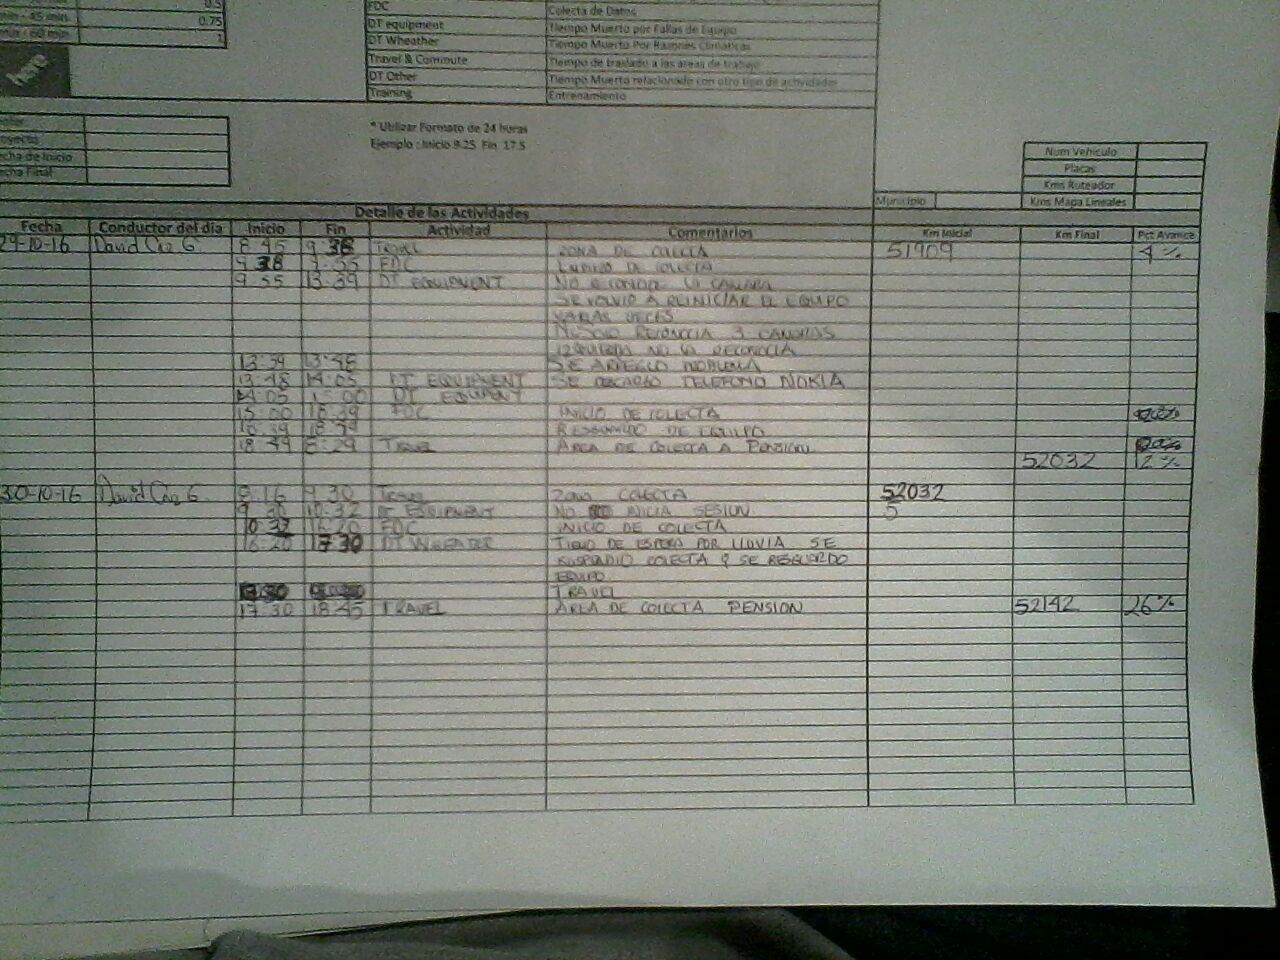 0.5
min - 45 min 0.75
min - 60 min 1
here
FDC Colecta de Datos
DT equipment Tiempo Muerto por Fallas de Equipo
DT Wheather Tiempo Muerto Por Razones Climaticas
Travel & Commute Tiempo de traslado a las areas de trabajo
DT Other Tiempo Muerto relacionado con otro tipo de actividades
Training Entrenamiento
* Utilizar Formato de 24 horas
Ejemplo : Inicio 9.25 Fin 17.5
oyecto
cha de Inicio
cha Final
Num Vehiculo
Placas
Kms Ruteador
Municipio Kms Mapa Lineales
Detalle de las Actividades
Fecha Conductor del dia Inicio Fin Actividad Comentarios Km Inicial Km Final Pct Avance
29-10-16 David G 8 45 9 38 Travel ZONA DE COLECTA 51909 4%
9 38 9:55 FDC DE COLECTA
9 55 13:39 DT EQUIPMENT NO LA CAMARA
SE VOLVIO A REINICIAR EL EQUIPO
VARIAS VECES
RECONOCIA 3 CAMARAS
IZQUIERDA NO LA RECONOCIA
13:39 13:48 SE ARREGLO PROBLEMA
13:48 14:05 DT EQUIPMENT SE DESCARGO TELEFONO NOKIA
14:05 15:00 DT EQUIPMENT
15:00 18:39 FDC INICIO DE COLECTA
18:39 18:49 RESGUARDO DE EQUIPO
18:49 Travel AREA DE COLECTA A PENSION
52032 12%
30-10-16 David G. 8:16 9 30 Travel ZONA COLECTA 52032
9 30 10:32 DT EQUIPMENT NO INICIA SESION 5
10:32 16:20 FDC INICIO DE COLECTA
16:20 17 30 DT WHEATER DE ESPERA POR LLUVIA SE
SUSPENDIO COLECTA Y SE RESGUARDO
EQUIPO
TRAVEL
17:30 18:45 TRAVEL AREA DE COLECTA PENSION 52142 26%